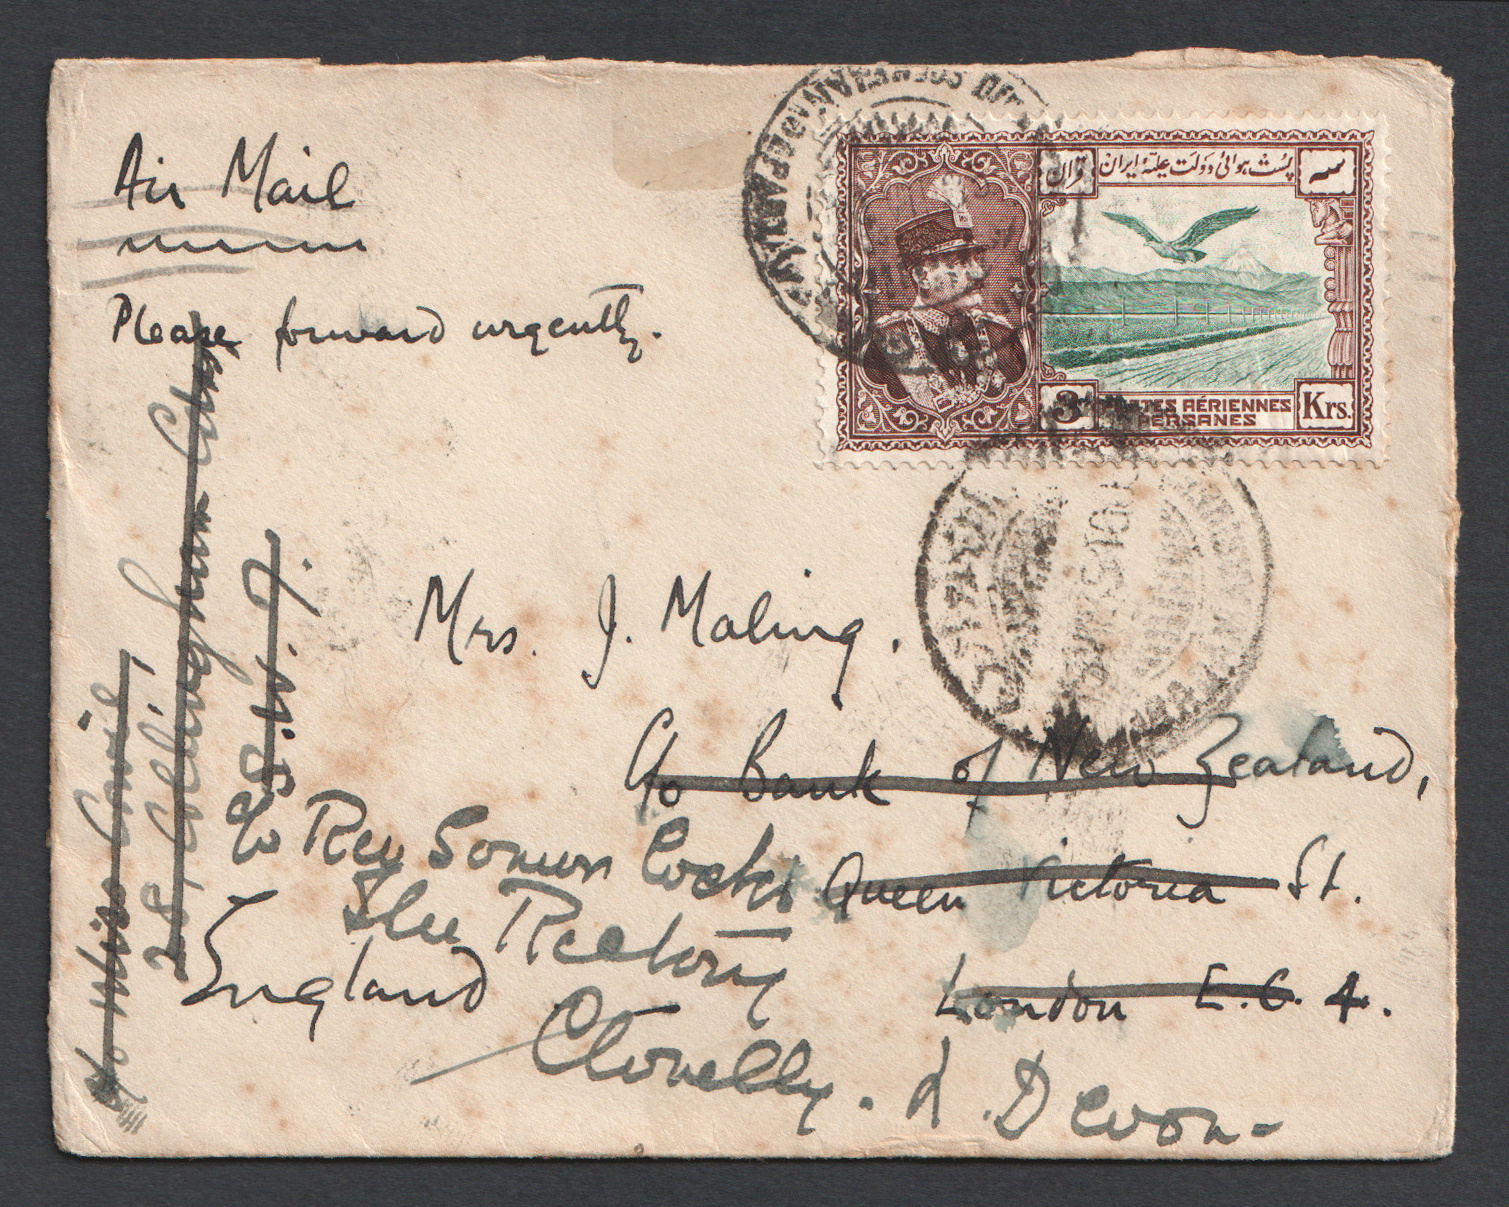 Air Mail
Please forward urgently.
قران
پست هوائی دولت علیّهٔ ایران
سه
3
POSTES AÉRIENNES
PERSANES
Krs.
Mrs. J. Maling.
C/o Bank of New Zealand,
Queen Victoria St.
London E.C. 4.
England
C/o Miss
28,
S.W.7.
C/o Rev Somers Cocks
The Rectory
Clovelly. N. Devon-